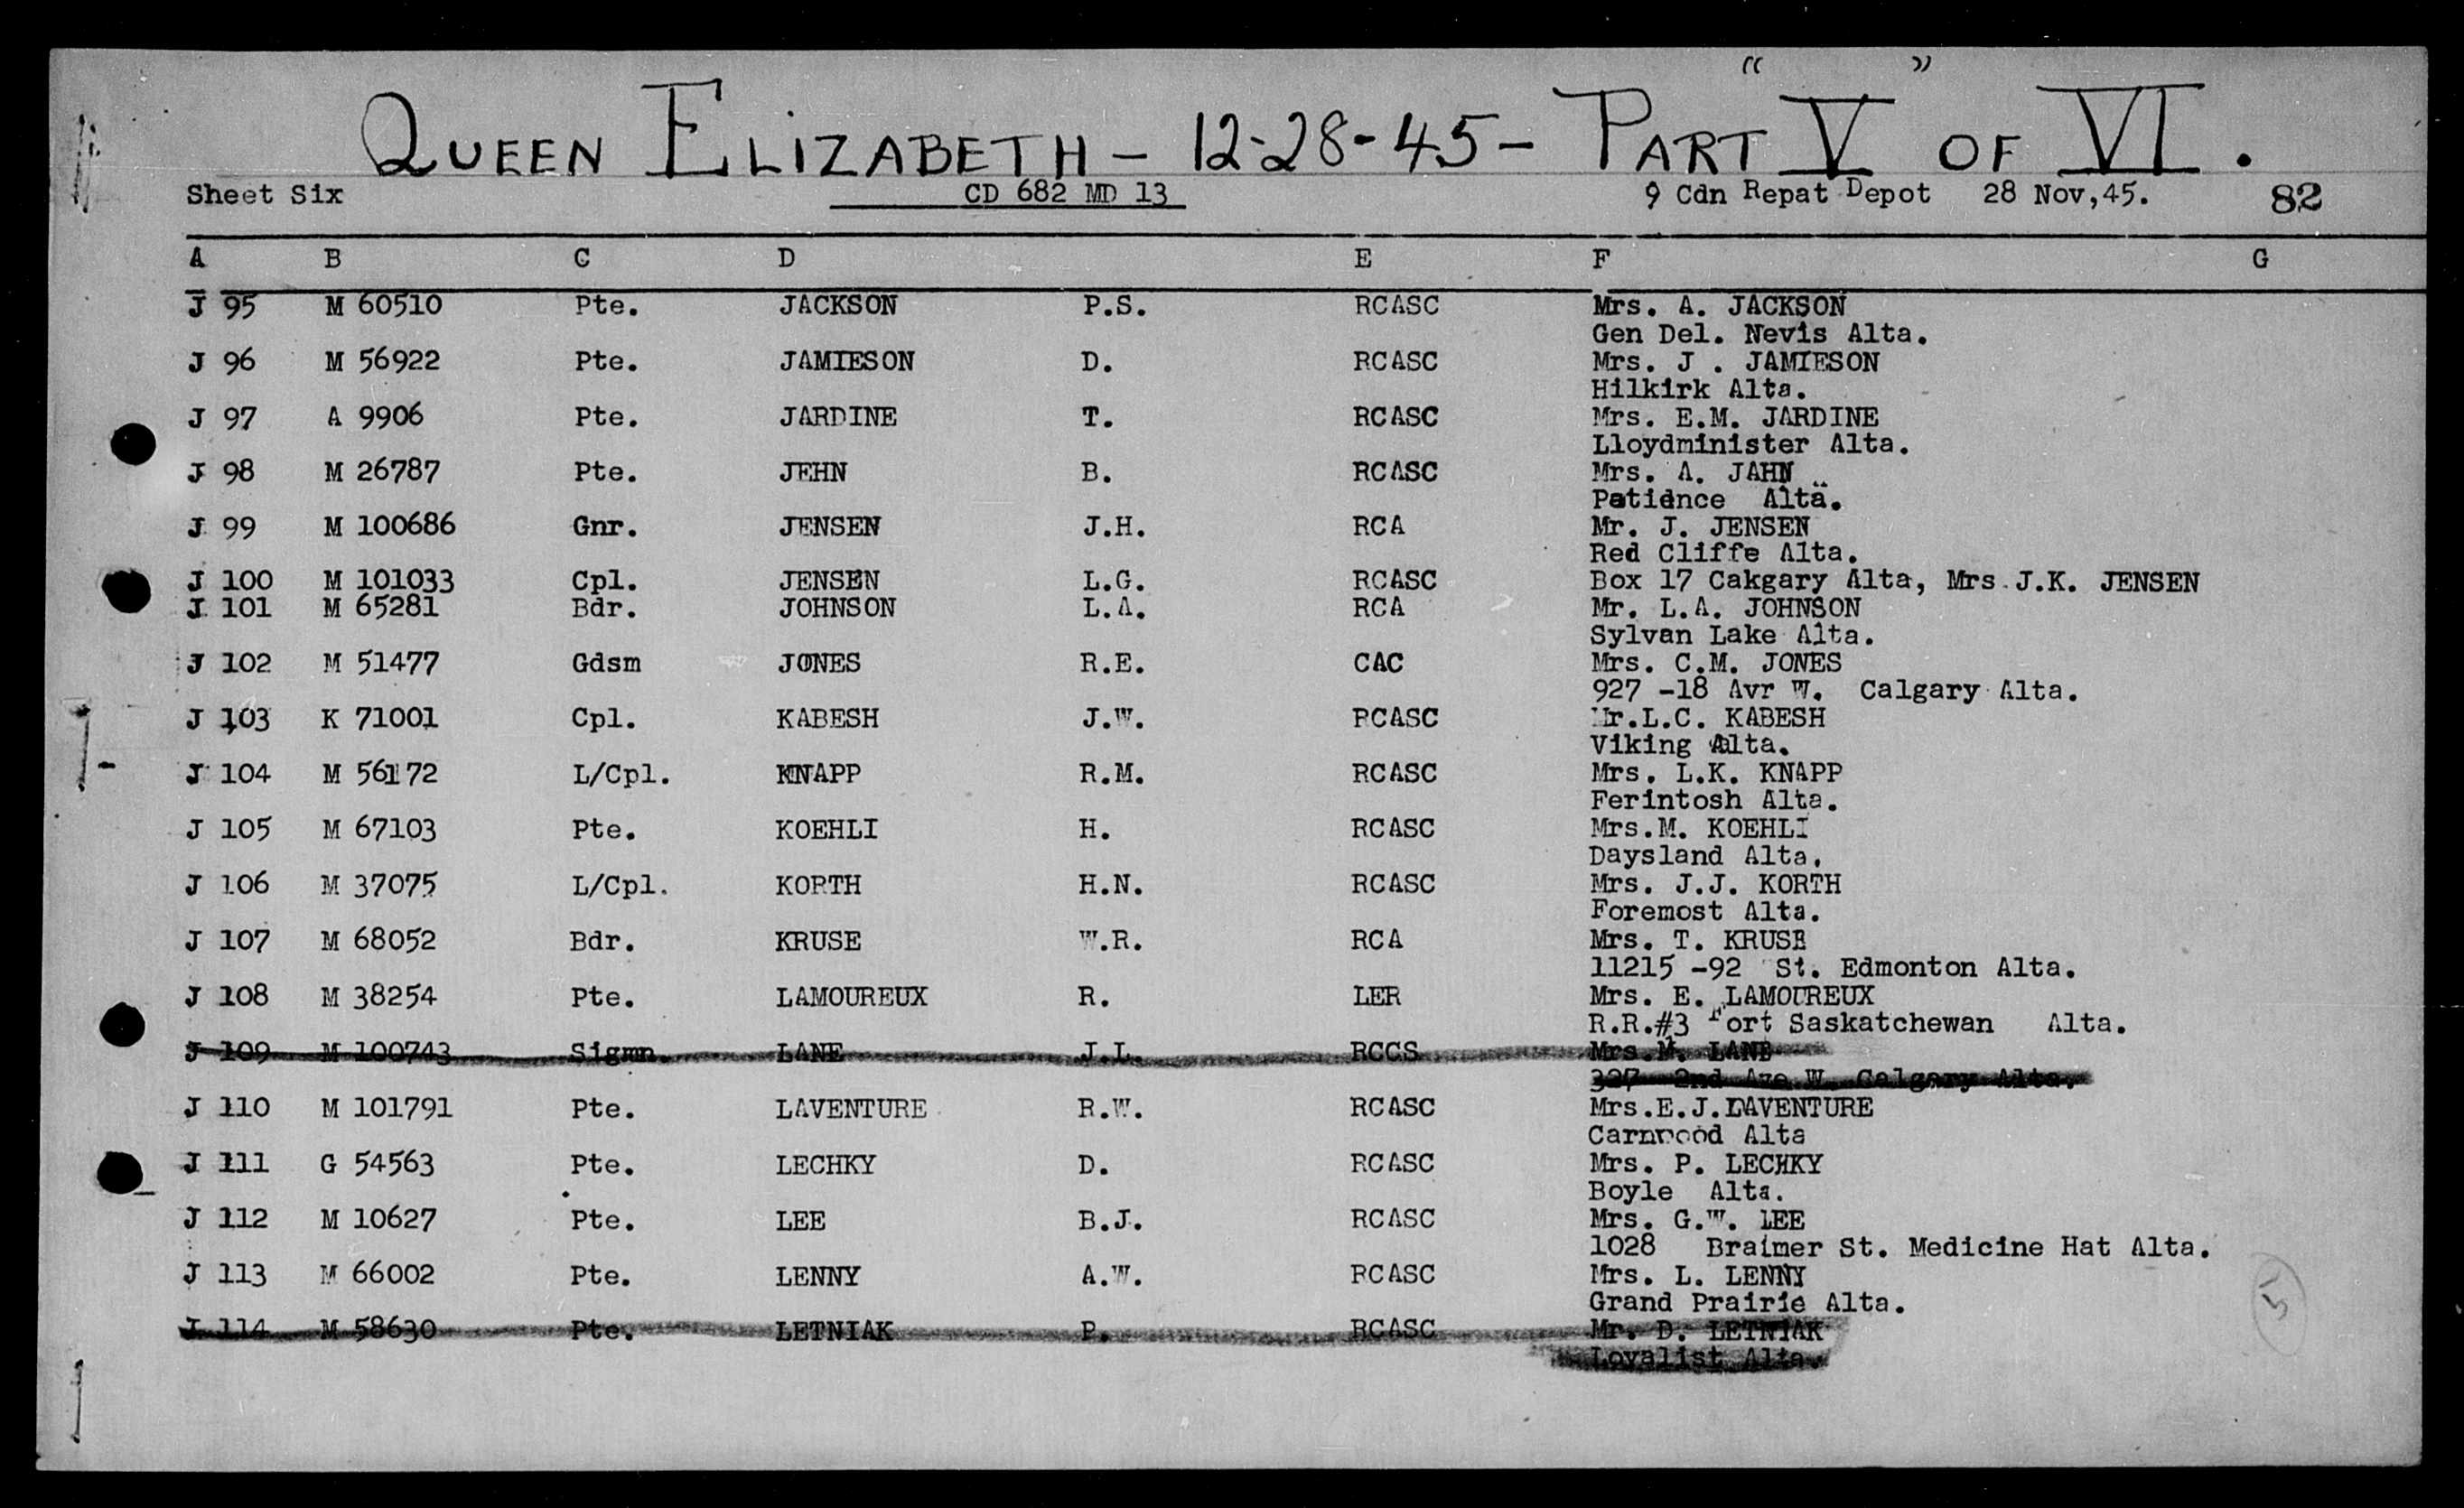 " "
QUEEN ELIZABETH - 12-28-45- PART V OF VI.
Sheet Six CD 682 MD 13 9 Cdn Repat Depot 28 Nov,45. 82
A B C D E F G
J 95 M 60510 Pte. JACKSON P.S. RCASC Mrs. A. JACKSON
Gen Del. Nevis Alta.
J 96 M 56922 Pte. JAMIESON D. RCASC Mrs. J . JAMIESON
Hilkirk Alta.
J 97 A 9906 Pte. JARDINE T. RCASC Mrs. E.M. JARDINE
Lloydminister Alta.
J 98 M 26787 Pte. JEHN B. RCASC Mrs. A. JAHN
Patience Alta.
J 99 M 100686 Gnr. JENSEN J.H. RCA Mr. J. JENSEN
Red Cliffe Alta.
J 100 M 101033 Cpl. JENSEN L.G. RCASC Box 17 Cakgary Alta, Mrs.J.K. JENSEN
J 101 M 65281 Bdr. JOHNSON L.A. RCA Mr. L.A. JOHNSON
Sylvan Lake Alta.
J 102 M 51477 Gdsm JONES R.E. CAC Mrs. C.M. JONES
927 -18 Avr W. Calgary Alta.
J 103 K 71001 Cpl. KABESH J.W. RCASC Mr.L.C. KABESH
Viking Alta.
J 104 M 56172 L/Cpl. KNAPP R.M. RCASC Mrs. L.K. KNAPP
Ferintosh Alta.
J 105 M 67103 Pte. KOEHLI H. RCASC Mrs.M. KOEHLI
Daysland Alta.
J 106 M 37075 L/Cpl. KORTH H.N. RCASC Mrs. J.J. KORTH
Foremost Alta.
J 107 M 68052 Bdr. KRUSE W.R. RCA Mrs. T. KRUSE
11215 -92 St. Edmonton Alta.
J 108 M 38254 Pte. LAMOUREUX R. LER Mrs. E. LAMOUREUX
R.R.#3 Fort Saskatchewan Alta.
J 109 M 100743 Sigmn. LANE J.L. RCCS Mrs.M. LANE
327 2nd Ave W. Calgary Alta.
J 110 M 101791 Pte. LAVENTURE R.W. RCASC Mrs.E.J.LAVENTURE
Carnwood Alta
J 111 G 54563 Pte. LECHKY D. RCASC Mrs. P. LECHKY
Boyle Alta.
J 112 M 10627 Pte. LEE B.J. RCASC Mrs. G.W. LEE
1028 Braimer St. Medicine Hat Alta.
J 113 M 66002 Pte. LENNY A.W. RCASC Mrs. L. LENNY
Grand Prairie Alta.
J 114 M 58630 Pte. LETNIAK P. RCASC Mr. D. LETNIAK
Loyalist Alta.
5